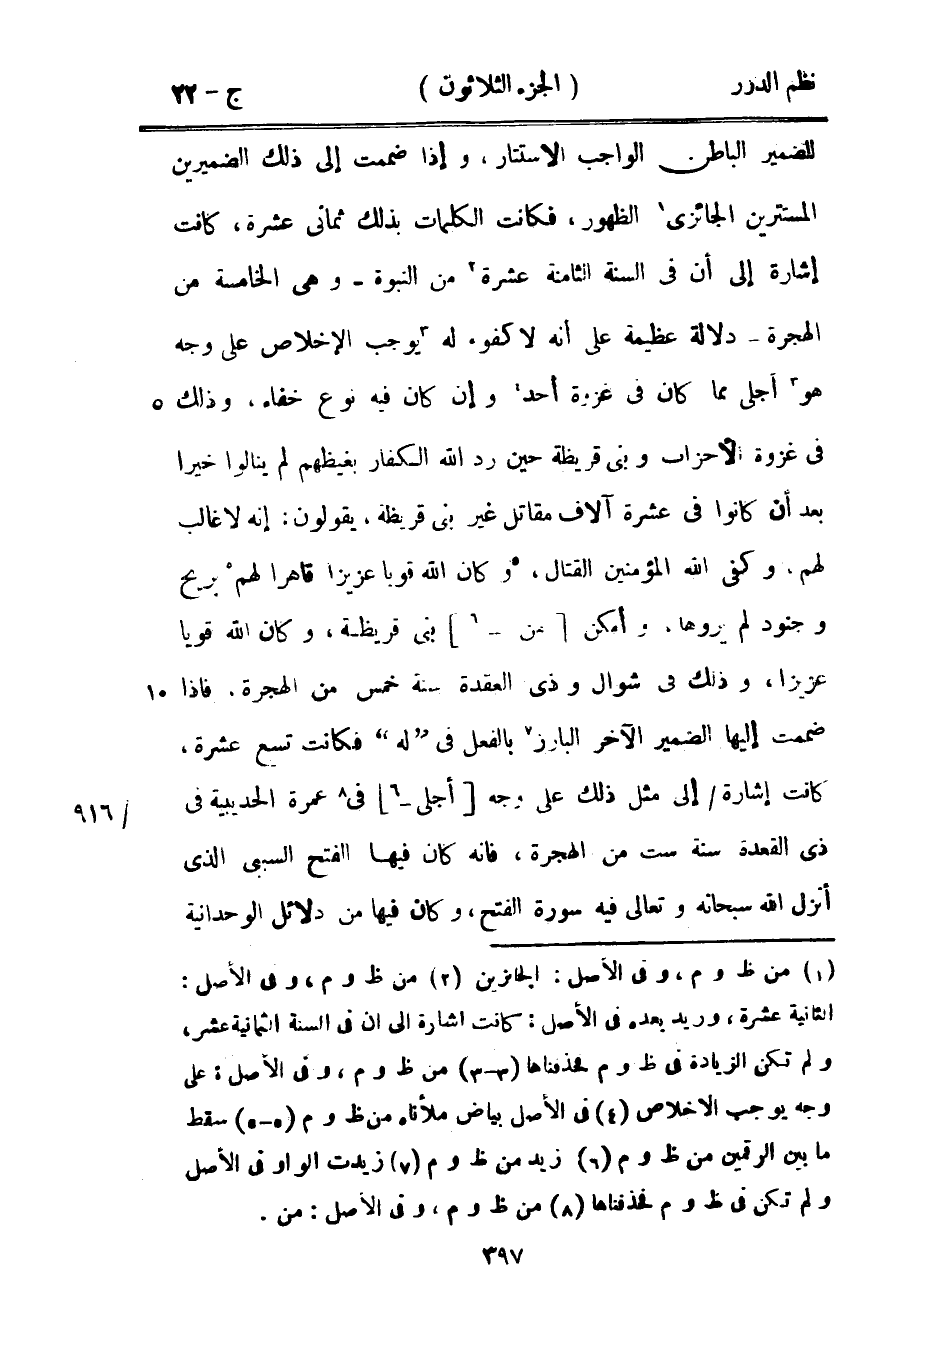 نظم الدرر ( الجزء الثلاثون ) ج - ٢٢
للضمير الباطن الواجب الاستتار ، و إذا ضممت إلى ذلك الضميرين
المستترين الجائزى١ الظهور ، فكانت الكلمات بذلك ثمانى عشرة ، كانت
إشارة إلى أن فى السنة الثامنة عشرة٢ من النبوة ـ و هى الخامسة من
الهجرة ـ دلالة عظيمة على أنه لا كفوء له ٣يوجب الإخلاص على وجه
هو٣ أجلى مما كان فى غزوة أحد٤ و إن كان فيه نوع خفاء ، و ذلك ٥
فى غزوة الأحزاب و بنى قريظة حين رد الله الكفار بغيظهم لم ينالوا خيرا
بعد أن كانوا فى عشرة آلاف مقاتل غير بنى قريظة ، يقولون : إنه لا غالب
لهم . و كفى الله المؤمنين القتال ، ٥و كان الله قويا عزيزا قاهرا لهم٥ بريح
و جنود لم يروها . و أمكن [ من ـ ٦ ] بنى قريظة ، و كان الله قويا
عزيزا ، و ذلك فى شوال و ذى العقدة سنة خمس من الهجرة . فاذا ١٠
ضممت إليها الضمير الآخر البارز٧ بالفعل فى ”له“ فكانت تسع عشرة ،
كانت إشارة / إلى مثل ذلك على وجه [ أجلى ـ٦ ] فى٨ عمرة الحديبية فى / ٩١٦
ذى القعدة سنة ست من الهجرة ، فانه كان فيها الفتح السببى الذى
أنزل الله سبحانه و تعالى فيه سورة الفتح ، و كان فيها من دلائل الوحدانية
(١) من ظ و م ، و فى الأصل : الجائزين (٢) من ظ و م ، و فى الأصل :
الثانية عشرة ، و زيد بعده فى الأصل : كانت اشارة الى ان فى السنة الثمانية عشر ،
و لم تكن الزيادة فى ظ و م فحذفناها (٣-٣) من ظ و م ، و فى الأصل : على
وجه يوجب الاخلاص (٤) فى الأصل بياض ملأناه من ظ و م (٥-٥) سقط
ما بين الرقمين من ظ و م (٦) زيد من ظ و م (٧) زيدت الواو فى الأصل
و لم تكن فى ظ و م فحذفناها (٨) من ظ و م ، و فى الأصل : من .
٣٩٧